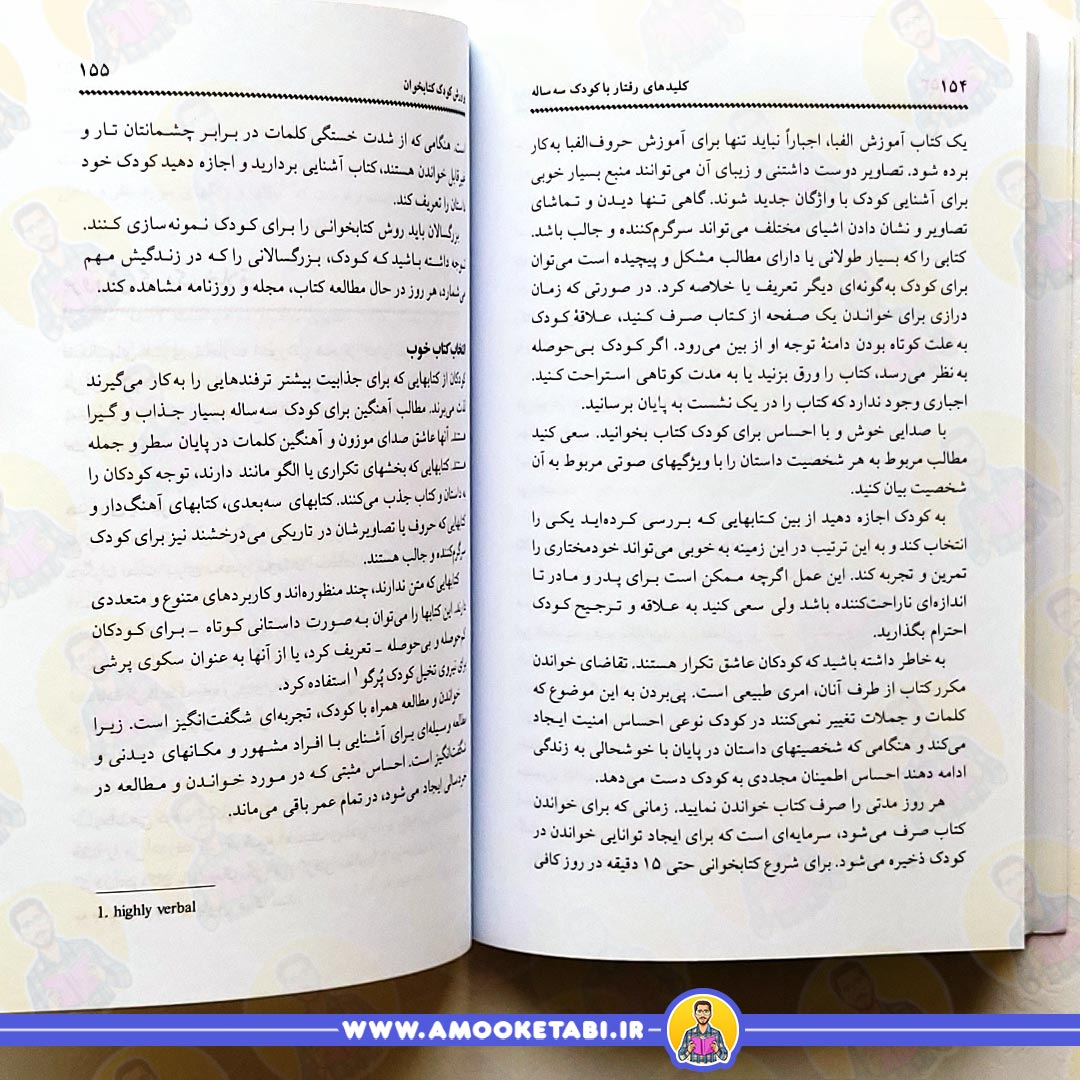 ۱۵۴
کلیدهای رفتار با کودک سه ساله
یک کتاب آموزش الفبا، اجباراً نباید تنها برای آموزش حروف‌الفبا به‌کار
برده شود. تصاویر دوست داشتنی و زیبای آن می‌توانند منبع بسیار خوبی
برای آشنایی کودک با واژگان جدید شوند. گاهی تنها دیدن و تماشای
تصاویر و نشان دادن اشیای مختلف می‌تواند سرگرم‌کننده و جالب باشد.
کتابی را که بسیار طولانی یا دارای مطالب مشکل و پیچیده است می‌توان
برای کودک به‌گونه‌ای دیگر تعریف یا خلاصه کرد. در صورتی که زمان
درازی برای خواندن یک صفحه از کتاب صرف کنید، علاقهٔ کودک
به علت کوتاه بودن دامنهٔ توجه او از بین می‌رود. اگر کودک بی‌حوصله
به نظر می‌رسد، کتاب را ورق بزنید یا به مدت کوتاهی استراحت کنید.
اجباری وجود ندارد که کتاب را در یک نشست به پایان برسانید.
با صدایی خوش و با احساس برای کودک کتاب بخوانید. سعی کنید
مطالب مربوط به هر شخصیت داستان را با ویژگیهای صوتی مربوط به آن
شخصیت بیان کنید.
به کودک اجازه دهید از بین کتابهایی که بررسی کرده‌اید یکی را
انتخاب کند و به این ترتیب در این زمینه به خوبی می‌تواند خودمختاری را
تمرین و تجربه کند. این عمل اگرچه ممکن است برای پدر و مادر تا
اندازه‌ای ناراحت‌کننده باشد ولی سعی کنید به علاقه و ترجیح کودک
احترام بگذارید.
به خاطر داشته باشید که کودکان عاشق تکرار هستند. تقاضای خواندن
مکرر کتاب از طرف آنان، امری طبیعی است. پی‌بردن به این موضوع که
کلمات و جملات تغییر نمی‌کنند در کودک نوعی احساس امنیت ایجاد
می‌کند و هنگامی که شخصیتهای داستان در پایان با خوشحالی به زندگی
ادامه دهند احساس اطمینان مجددی به کودک دست می‌دهد.
هر روز مدتی را صرف کتاب خواندن نمایید. زمانی که برای خواندن
کتاب صرف می‌شود، سرمایه‌ای است که برای ایجاد توانایی خواندن در
کودک ذخیره می‌شود. برای شروع کتابخوانی حتی ۱۵ دقیقه در روز کافی
۱۵۵
کودک کتابخوان
است. هنگامی که از شدت خستگی کلمات در برابر چشمانتان تار و
غیرقابل خواندن هستند، کتاب آشنایی بردارید و اجازه دهید کودک خود
داستان را تعریف کند.
بزرگسالان باید روش کتابخوانی را برای کودک نمونه‌سازی کنند.
توجه داشته باشید که کودک، بزرگسالانی را که در زندگیش مهم
می‌شمارد، هر روز در حال مطالعه کتاب، مجله و روزنامه مشاهده کند.
انتخاب کتاب خوب
کودکان از کتابهایی که برای جذابیت بیشتر ترفندهایی را به‌کار می‌گیرند
لذت می‌برند. مطالب آهنگین برای کودک سه‌ساله بسیار جذاب و گیرا
هستند. آنها عاشق صدای موزون و آهنگین کلمات در پایان سطر و جمله
هستند. کتابهایی که بخشهای تکراری یا الگو مانند دارند، توجه کودکان را
به داستان و کتاب جذب می‌کنند. کتابهای سه‌بعدی، کتابهای آهنگ‌دار و
کتابهایی که حروف یا تصاویرشان در تاریکی می‌درخشند نیز برای کودک
سرگرم‌کننده و جالب هستند.
کتابهایی که متن ندارند، چند منظوره‌اند و کاربردهای متنوع و متعددی
دارند. این کتابها را می‌توان به صورت داستانی کوتاه – برای کودکان
کم‌حوصله و بی‌حوصله – تعریف کرد، یا از آنها به عنوان سکوی پرشی
برای نیروی تخیل کودک پُرگو۱ استفاده کرد.
خواندن و مطالعه همراه با کودک، تجربه‌ای شگفت‌انگیز است. زیرا
مطالعه وسیله‌ای برای آشنایی با افراد مشهور و مکانهای دیدنی و
شگفت‌انگیز است. احساس مثبتی که در مورد خواندن و مطالعه در
خردسالی ایجاد می‌شود، در تمام عمر باقی می‌ماند.
1. highly verbal
WWW.AMOOKETABI.IR